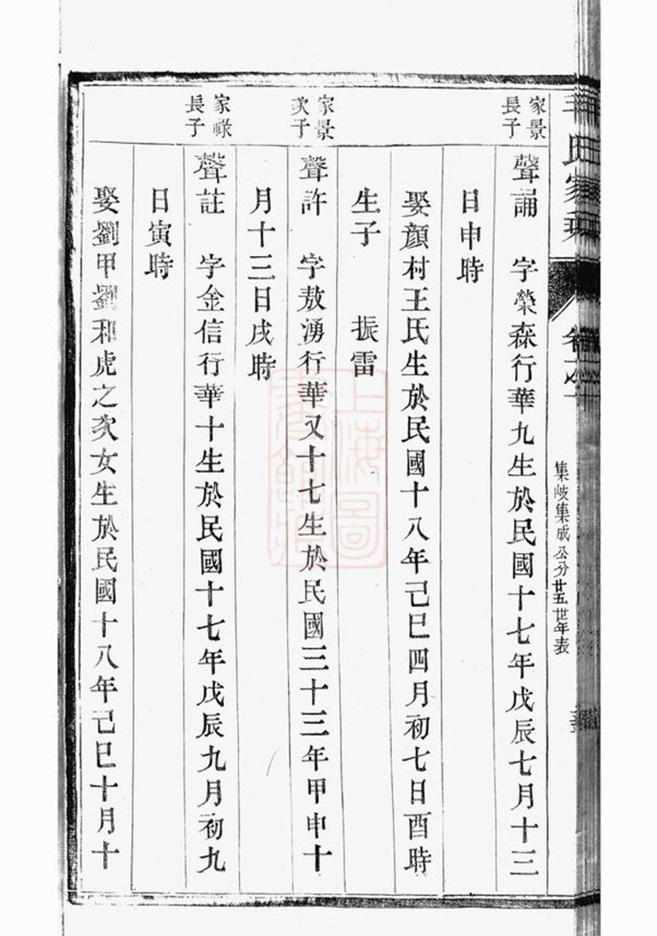 氏家乘
卷之
集岐集成公分廿五世年表
家景
長子
聲誦 字榮森行華九生於民國十七年戊辰七月十三
日申時
娶顏村王氏生於民國十八年己巳四月初七日酉時
生子 振雷
家景
次子
聲許 字敖湧行華又十七生於民國三十三年甲申十
月十三日戌時
家嵘
長子
聲註 字金信行華十生於民國十七年戊辰九月初九
日寅時
娶劉甲劉和虎之次女生於民國十八年己巳十月十
上海圖